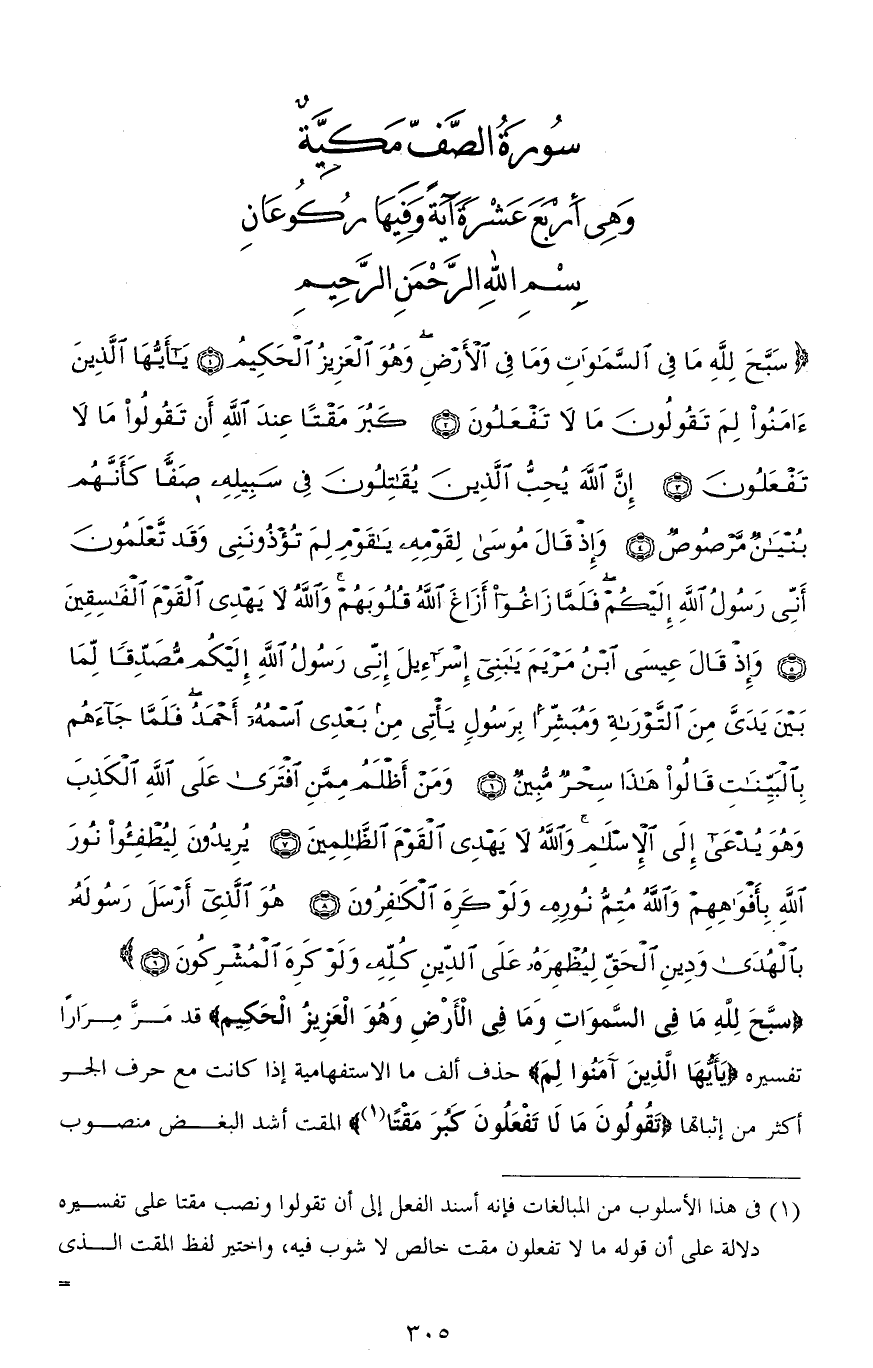 سُورَةُ الصَّفِّ مَكِّيَّةٌ
وَهِيَ أَرْبَعَ عَشْرَةَ آيَةً وَّفِيهَا رُكُوعَانِ
بِسْمِ اللهِ الرَّحْمَنِ الرَّحِيمِ
﴿ سَبَّحَ لِلَّهِ مَا فِي ٱلسَّمَٰوَٰتِ وَمَا فِي ٱلْأَرْضِۖ وَهُوَ ٱلْعَزِيزُ ٱلْحَكِيمُ ۝١ يَٰٓأَيُّهَا ٱلَّذِينَ
ءَامَنُوا۟ لِمَ تَقُولُونَ مَا لَا تَفْعَلُونَ ۝٢ كَبُرَ مَقْتًا عِندَ ٱللَّهِ أَن تَقُولُوا۟ مَا لَا
تَفْعَلُونَ ۝٣ إِنَّ ٱللَّهَ يُحِبُّ ٱلَّذِينَ يُقَٰتِلُونَ فِي سَبِيلِهِۦ صَفًّا كَأَنَّهُم
بُنْيَٰنٌ مَّرْصُوصٌ ۝٤ وَإِذْ قَالَ مُوسَىٰ لِقَوْمِهِۦ يَٰقَوْمِ لِمَ تُؤْذُونَنِي وَقَد تَّعْلَمُونَ
أَنِّي رَسُولُ ٱللَّهِ إِلَيْكُمْۖ فَلَمَّا زَاغُوٓا۟ أَزَاغَ ٱللَّهُ قُلُوبَهُمْۚ وَٱللَّهُ لَا يَهْدِي ٱلْقَوْمَ ٱلْفَٰسِقِينَ
۝٥ وَإِذْ قَالَ عِيسَى ٱبْنُ مَرْيَمَ يَٰبَنِيٓ إِسْرَٰٓءِيلَ إِنِّي رَسُولُ ٱللَّهِ إِلَيْكُم مُّصَدِّقًا لِّمَا
بَيْنَ يَدَيَّ مِنَ ٱلتَّوْرَىٰةِ وَمُبَشِّرًۢا بِرَسُولٍ يَأْتِي مِنۢ بَعْدِي ٱسْمُهُۥٓ أَحْمَدُۖ فَلَمَّا جَآءَهُم
بِٱلْبَيِّنَٰتِ قَالُوا۟ هَٰذَا سِحْرٌ مُّبِينٌ ۝٦ وَمَنْ أَظْلَمُ مِمَّنِ ٱفْتَرَىٰ عَلَى ٱللَّهِ ٱلْكَذِبَ
وَهُوَ يُدْعَىٰٓ إِلَى ٱلْإِسْلَٰمِۚ وَٱللَّهُ لَا يَهْدِي ٱلْقَوْمَ ٱلظَّٰلِمِينَ ۝٧ يُرِيدُونَ لِيُطْفِـُٔوا۟ نُورَ
ٱللَّهِ بِأَفْوَٰهِهِمْ وَٱللَّهُ مُتِمُّ نُورِهِۦ وَلَوْ كَرِهَ ٱلْكَٰفِرُونَ ۝٨ هُوَ ٱلَّذِيٓ أَرْسَلَ رَسُولَهُۥ
بِٱلْهُدَىٰ وَدِينِ ٱلْحَقِّ لِيُظْهِرَهُۥ عَلَى ٱلدِّينِ كُلِّهِۦ وَلَوْ كَرِهَ ٱلْمُشْرِكُونَ ۝٩ ﴾
﴿سَبَّحَ لِلَّهِ مَا فِي السَّموَاتِ وَمَا فِي الْأَرْضِ وَهُوَ الْعَزِيزُ الْحَكِيم﴾ قد مَرَّ مِرَارًا
تفسيره ﴿يَأَيُّهَا الَّذِينَ آمَنُوا لِمَ﴾ حذف ألف ما الاستفهامية إذا كانت مع حرف الجر
أكثر من إثباتها ﴿تَقُولُونَ مَا لَا تَفْعَلُونَ كَبُرَ مَقْتًا(١)﴾ المقت أشد البغض منصوب
(١) في هذا الأسلوب من المبالغات فإنه أسند الفعل إلى أن تقولوا ونصب مقتا على تفسيره
دلالة على أن قوله ما لا تفعلون مقت خالص لا شوب فيه، واختير لفظ المقت الذى
=
٣٠٥